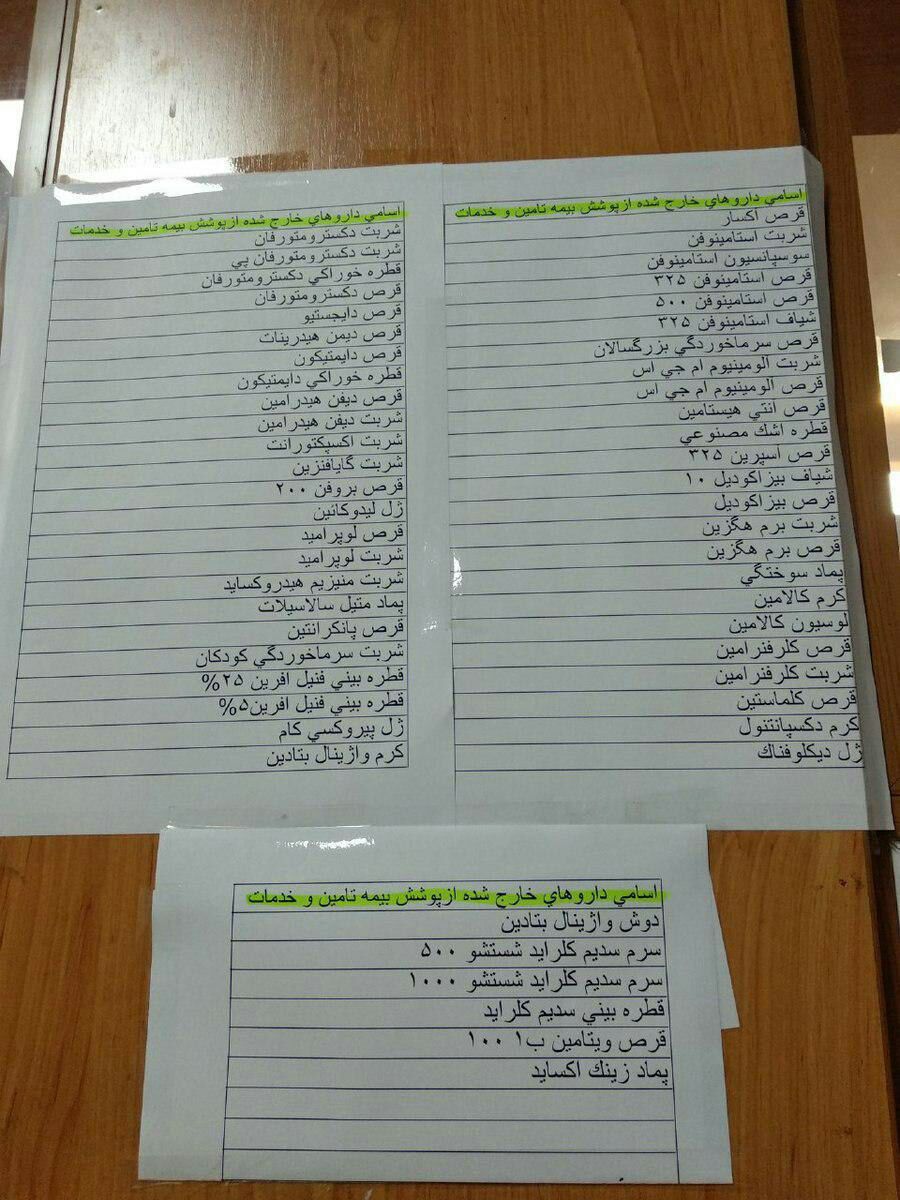 اسامي داروهاي خارج شده ازپوشش بيمه تامين و خدمات
قرص اكسار
شربت استامينوفن
سوسپانسيون استامينوفن
قرص استامينوفن ۳۲۵
قرص استامينوفن ۵۰۰
شياف استامينوفن ۳۲۵
قرص سرماخوردگي بزرگسالان
شربت الومينيوم ام جي اس
قرص الومينيوم ام جي اس
قرص انتي هيستامين
قطره اشك مصنوعي
قرص اسپرين ۳۲۵
شياف بيزاكوديل ۱۰
قرص بيزاكوديل
شربت برم هگزين
قرص برم هگزين
پماد سوختگي
كرم كالامين
لوسيون كالامين
قرص كلرفنرامين
شربت كلرفنرامين
قرص كلماستين
كرم دكسپانتنول
ژل ديكلوفناك
اسامي داروهاي خارج شده ازپوشش بيمه تامين و خدمات
شربت دكسترومتورفان
شربت دكسترومتورفان پي
قطره خوراكي دكسترومتورفان
قرص دكسترومتورفان
قرص دايجستيو
قرص ديمن هيدرينات
قرص دايمتيكون
قطره خوراكي دايمتيكون
قرص ديفن هيدرامين
شربت ديفن هيدرامين
شربت اكسپكتورانت
شربت گايافنزين
قرص بروفن ۲۰۰
ژل ليدوكائين
قرص لوپراميد
شربت لوپراميد
شربت منيزيم هيدروكسايد
پماد متيل سالاسيلات
قرص پانكرانتين
شربت سرماخوردگي كودكان
قطره بيني فنيل افرين ۲۵%
قطره بيني فنيل افرين۵%
ژل پيروكسي كام
كرم واژينال بتادين
اسامي داروهاي خارج شده ازپوشش بيمه تامين و خدمات
دوش واژينال بتادين
سرم سديم كلرايد شستشو ۵۰۰
سرم سديم كلرايد شستشو ۱۰۰۰
قطره بيني سديم كلرايد
قرص ويتامين ب۱ ۱۰۰
پماد زينك اكسايد